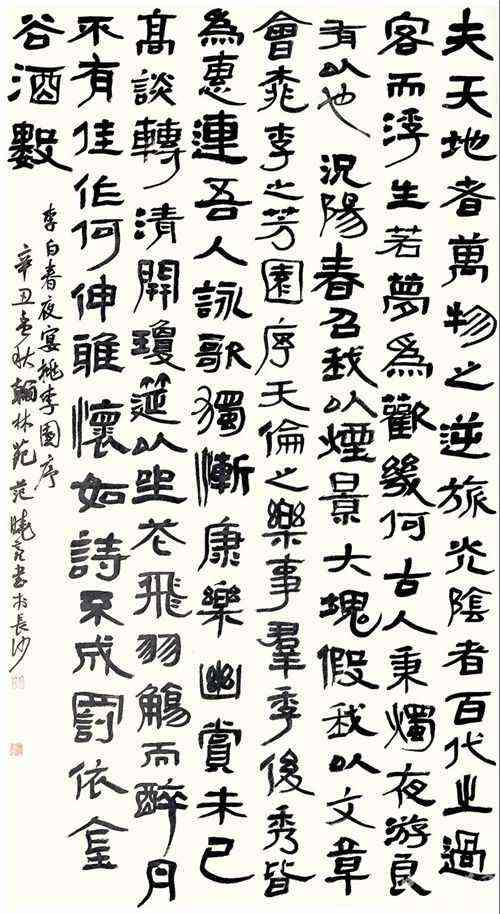 夫天地者萬物之逆旅光陰者百代之過
客而浮生若夢為歡幾何古人秉燭夜游良
有以也況陽春召我以煙景大塊假我以文章
會桃李之芳園序天倫之樂事羣季俊秀皆
為惠連吾人詠歌獨慚康樂幽賞未已
高談轉清開瓊筵以坐花飛羽觴而醉月
不有佳作何伸雅懷如詩不成罰依金
谷酒數
李白春夜宴桃李園序
辛丑孟秋翰林苑范曉亮書於長沙